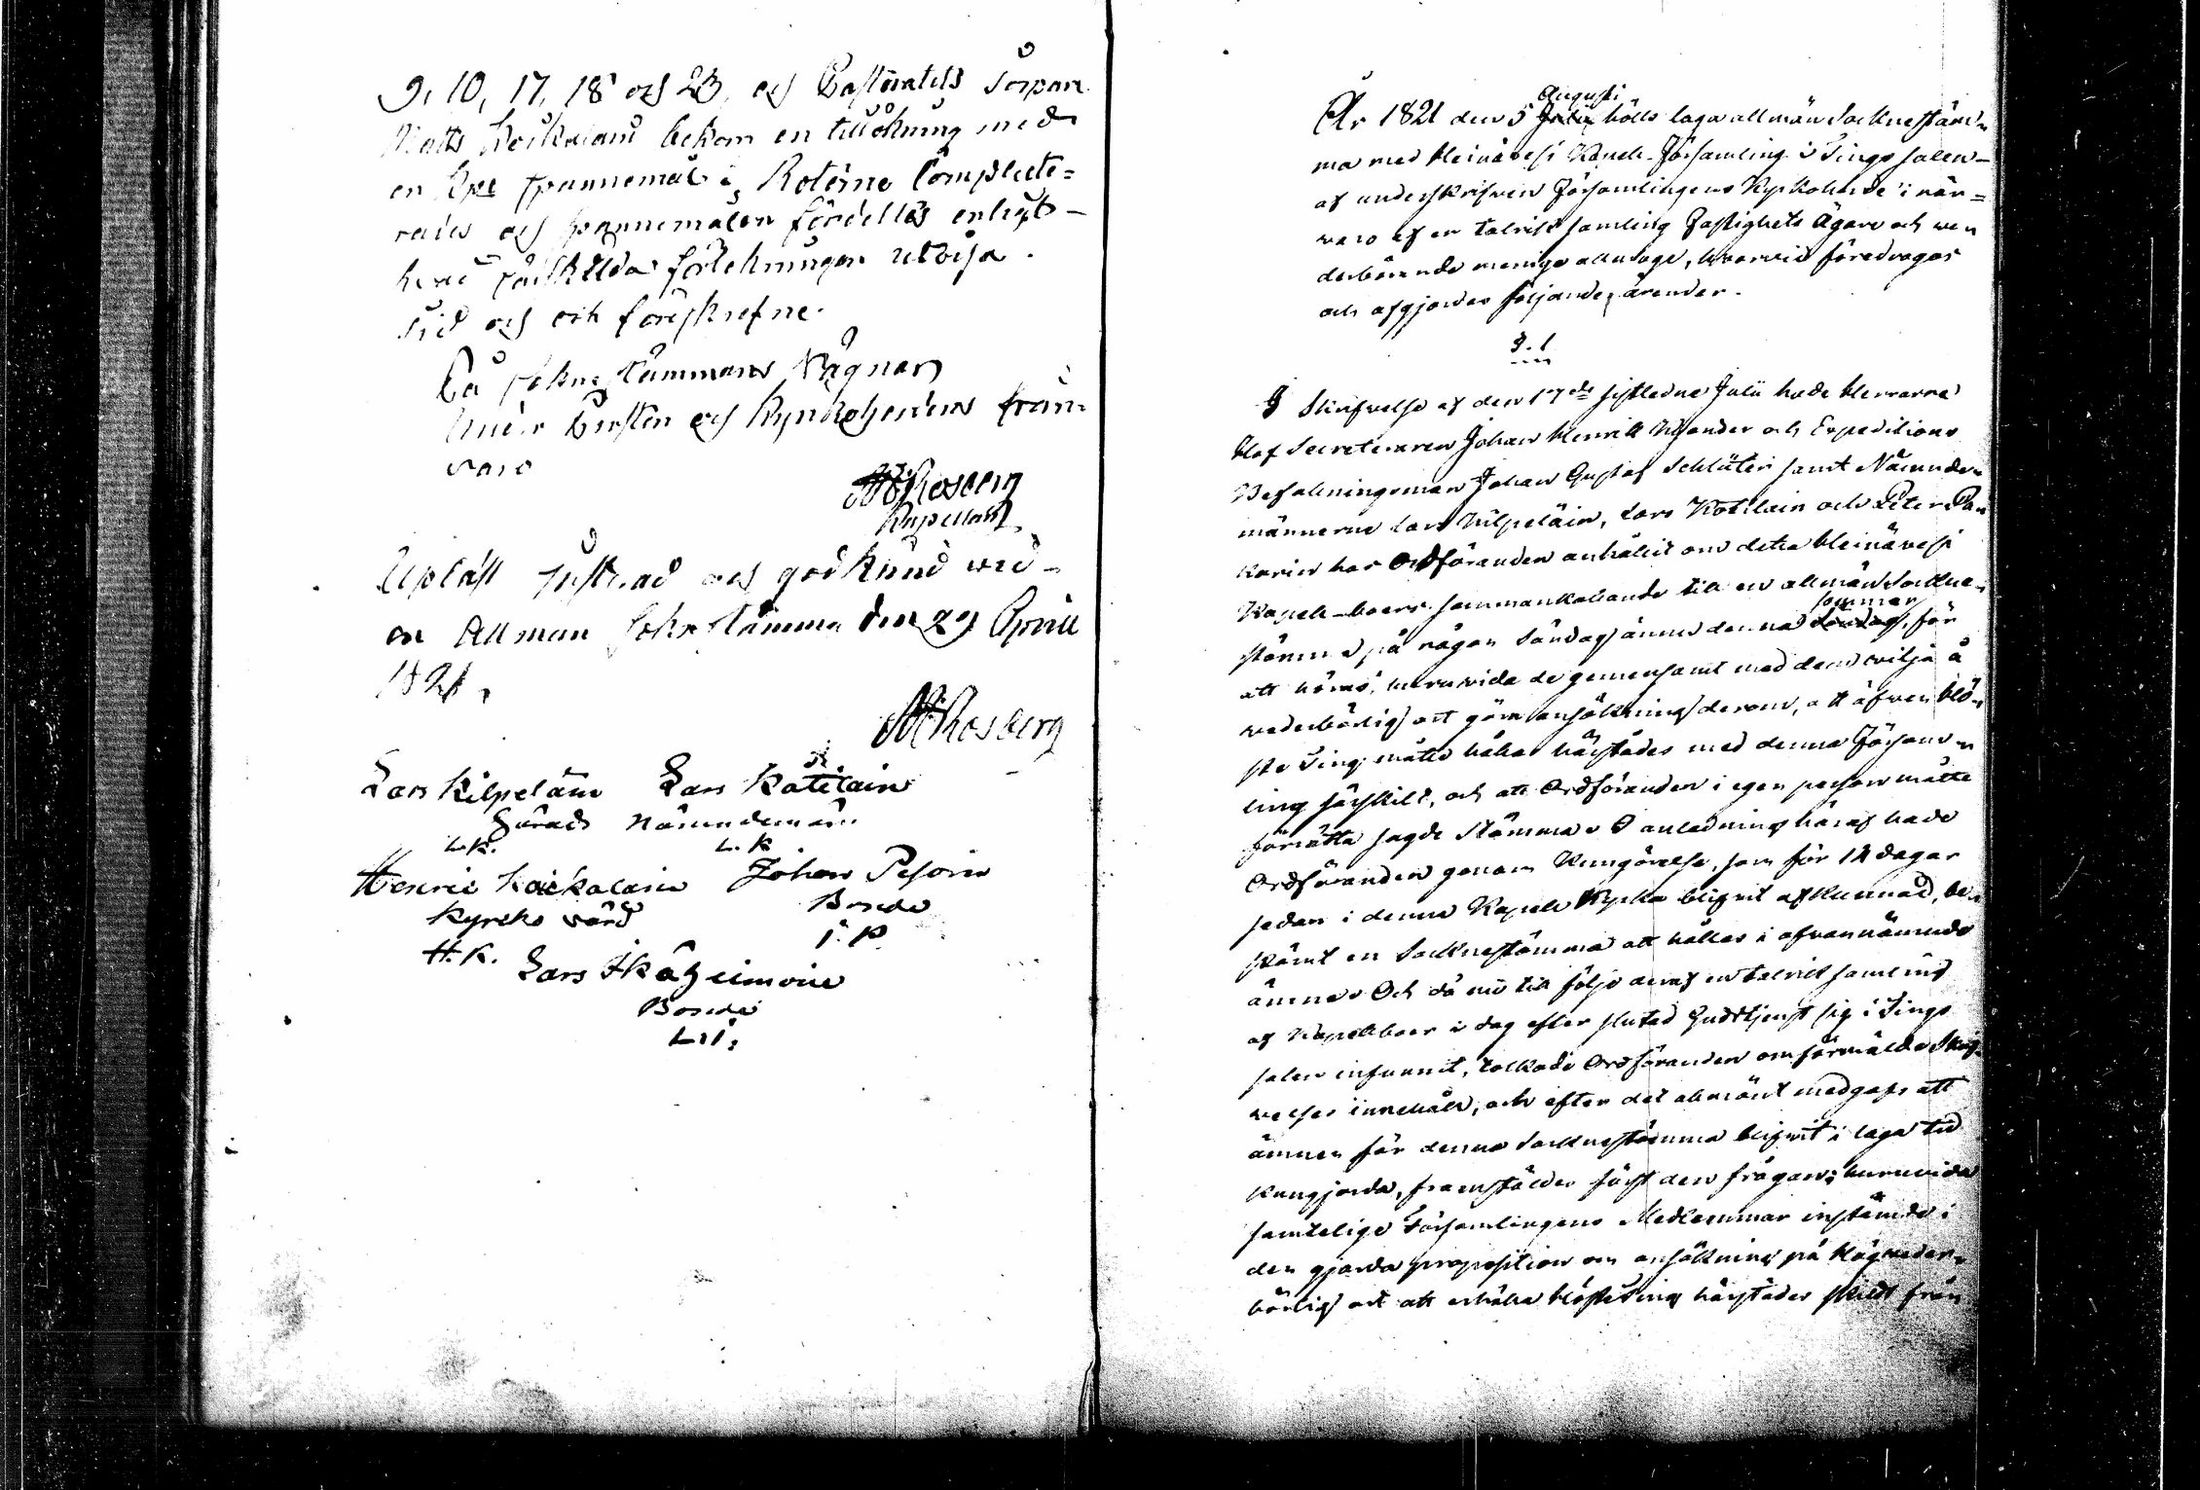 9, 10, 17, 18 och 23, och Pastoratets Torpare
Matts Koikalain bekom en tillökning med
en spannemål i Roterne Complete=
rades och spannemålen fördeltes enligt
särskilda förtekningen utvisa.
tid och ort föreskrefne.
På Sokne stämmans vägnar
Under Bersten och Kyrkoherdens från
varo
Rosberg
Kapellan
Uplast justerad och godkänd wid
en Allmän Sokne stämma den 29 April
1821.
Rosberg
Lars Kilpeläin Lars Kotilain
Härads Nämndemän
L.K. L.K
Henric Koikalain Johan Pesoin
Kyrcko värd Bonde
H.K. I.P
Lars Ikäheimoin
Bonde
L.I.
Augusti
År 1821 den 5 Julii hölls laga allmän Sockne stäm=
ma med Heinävesi Kapell-Församling i Tings salen
af underskrifven Församlingens Kyrkoherde i när=
varo af en talrik samling Fastighets Ägare och we
derbörande menige allmoge, hvarvid föredrogos
och afgjordes följande ärender.
§. 1
I Skrifvelse af den 17de sistledne Julii hade Herrarne
Hof Secreteraren Johan Henrik Wijander och Expeditions
Befallningsman Johan Gustaf Schlüter samt Nämnde=
männerne Lars Kilpeläin, Lars Kotilain och Peter Pa
karin hos Ordföranden anhållit om detta Heinävesi
Kapell-boers sammankallande till en allmän Sockne=
sommar
stämma på någon Söndag ännu denna, för
att höras, huruvida de gemensamt med dem vilja å
wederbörlig ort göra ansökning derom, att äfwen Hö=
ste Ting måtte hållas härstädes med denna Försam=
ling särskilt, och att Ordföranden i egen person måtte
förrätta sagde Stämma. I anledning häraf hade
Ordföranden genom Kungörelse, som för 14 dagar
sedan i denna Kapell Kyrka blifvit afkunnad, be=
stämt en Sockne stämma att hållas i ofvannämnde
ämne. Och då nu till följe deraf en talrik samling
af Kapellboer i dag efter slutad Gudstjenst sig i Tings
salen infunnit, tolkade Ordföranden omförmälde Skrif=
velses innehåll, och efter det allmänt medgafs att
ämnen för denna Sockne stämma blifvit i laga tid
kungjorda, framstäldes först den frågan: huruvida
samtelige Församlingens Medlemmar instämde i
den gjorda proposition om ansökning på högveder=
börlig ort att erhålla Höste Ting härstädes skildt från